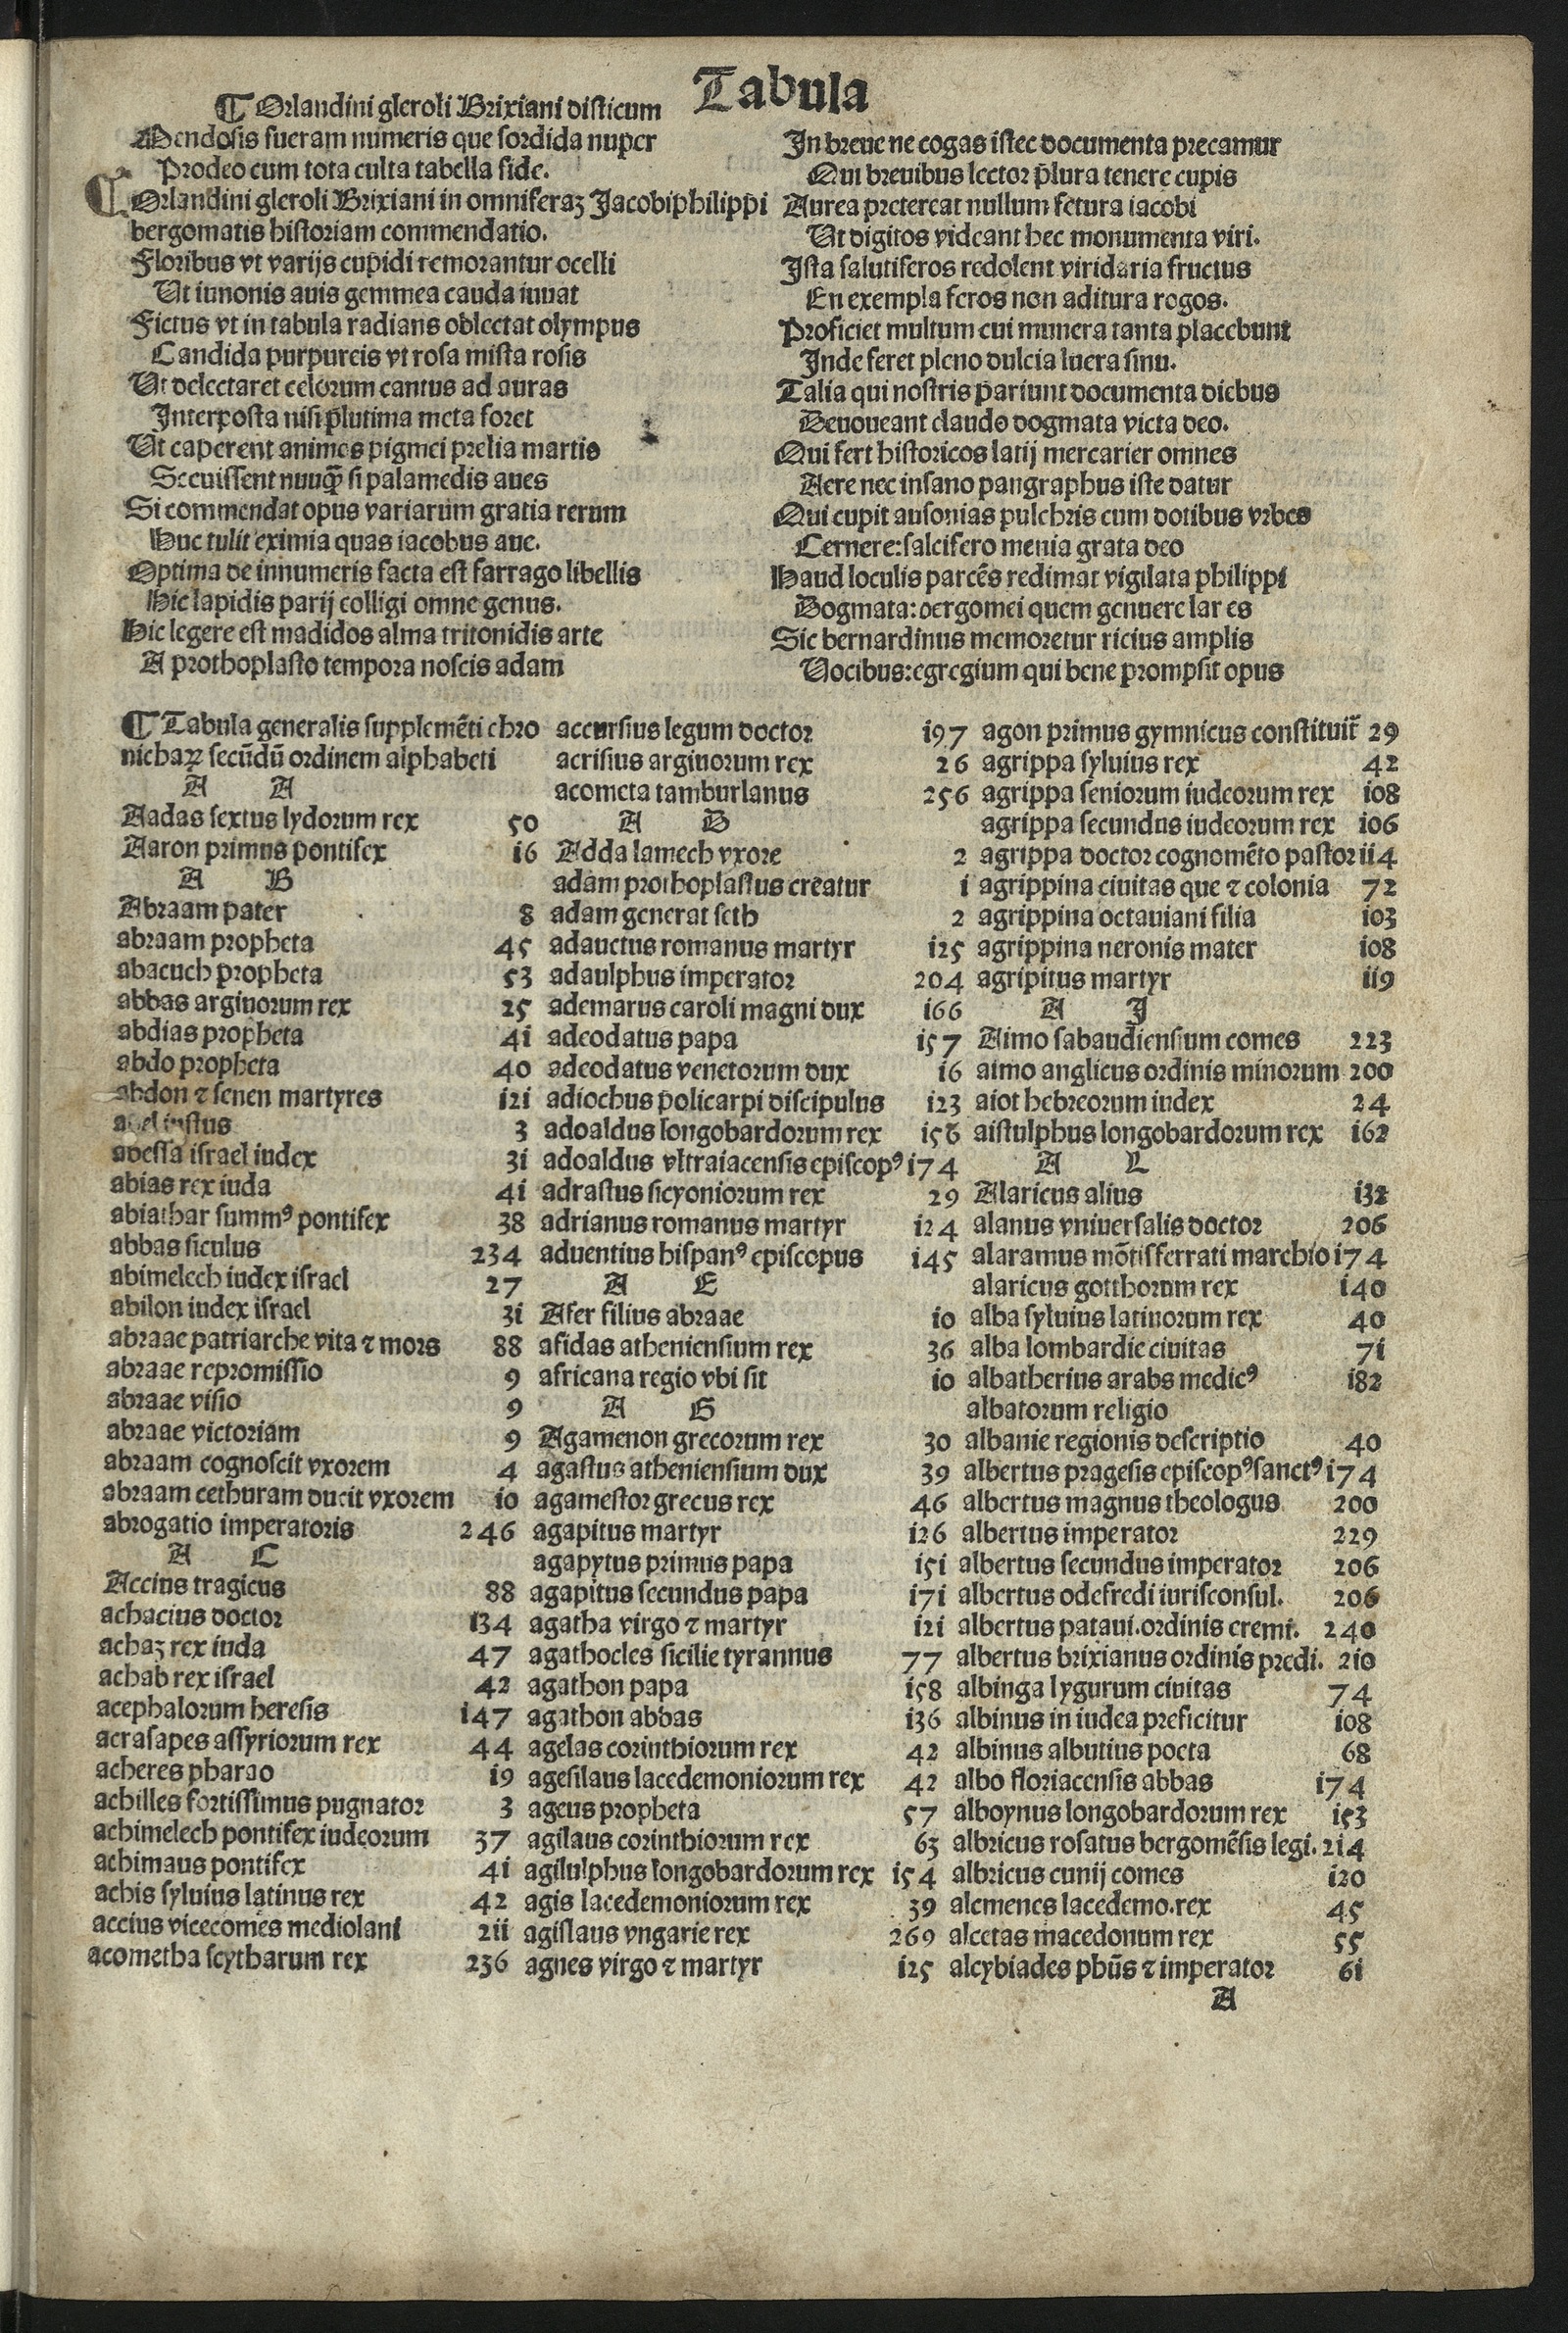 Tabula
¶ Orlandini gleroli Brixiani disticum
Mendosis fueram numeris que sordida nuper
Prodeo cum tota culta tabella fide.
¶ Orlandini gleroli Brixiani in omniferaꝫ Jacobiphilippi
bergomatis historiam commendatio.
Floribus vt varijs cupidi remorantur ocelli
Ut iunonis auis gemmea cauda iuuat
Fictus vt in tabula radians oblectat olympus
Candida purpureis vt rosa mista rosis
Ut delectaret celorum cantus ad auras
Interposta nisi p̄lutima meta foret
Ut caperent animos pigmei prelia martis
Secuissent nunꝙ̄ si palamedis aues
Si commendat opus variarum gratia rerum
Huc tulit eximia quas iacobus aue.
Optima de innumeris facta est farrago libellis
Hic lapidis parij colligi omne genus.
Hic legere est madidos alma tritonidis arte
A prothoplasto tempora noscis adam
In breue ne cogas istec documenta precamur
Qui breuibus lector p̄lura tenere cupis
Aurea pretereat nullum fetura iacobi
Ut digitos videant hec monumenta viri.
Ista salutiferos redolent viridaria fructus
En exempla feros non aditura rogos.
Proficiet multum cui munera tanta placebunt
Inde feret pleno dulcia lucra sinu.
Talia qui nostris pariunt documenta diebus
Deuoueant claudo dogmata victa deo.
Qui fert historicos latij mercarier omnes
Aere nec insano pangraphus iste datur
Qui cupit ausonias pulchris cum dotibus vrbes
Cernere: salcifero menia grata deo
Haud loculis parcēs redimat vigilata philippi
Dogmata: bergomei quem genuere lar es
Sic bernardinus memoretur ricius amplis
Vocibus: egregium qui bene prompsit opus
¶ Tabula generalis supplemēti chro
nichaꝝ secūdū ordinem alphabeti
A A
Aadas sextus lydorum rex 50
Aaron primus pontifex i6
A B
Abraam pater 8
abraam propheta 45
abacuch propheta 53
abbas arginorum rex 25
abdias propheta 4i
abdo propheta 40
abdon ⁊ senen martyres i2i
abel iustus 3
abessa israel iudex 3i
abias rex iuda 4i
abiathar summꝰ pontifex 38
abbas siculus 234
abimelech iudex israel 27
abilon iudex israel 3i
abraae patriarche vita ⁊ mors 88
abraae repromissio 9
abraae visio 9
abraae victoriam 9
abraam cognoscit vxorem 4
abraam cethuram ducit vxorem i0
abrogatio imperatoris 246
A C
Accius tragicus 88
achacius doctor i34
achaꝫ rex iuda 47
achab rex israel 42
acephalorum heresis i47
acrasapes assyriorum rex 44
acheres pharao i9
achilles fortissimus pugnator 3
achimelech pontifex iudeorum 37
achimaus pontifex 4i
achis syluius latinus rex 42
accius vicecomes mediolani 2ii
acometha scytharum rex 236
accursius legum doctor i97
acrisius arginorum rex 26
acometa tamburlanus 256
A D
Adda lamech vxore 2
adam prothoplastus creatur i
adam generat seth 2
adauctus romanus martyr i25
adaulphus imperator 204
ademarus caroli magni dux i66
adeodatus papa i57
adeodatus venetorum dux i6
adiochus policarpi discipulus i23
adoaldus longobardorum rex i56
adoaldus vltraiacensis episcopꝰ i74
adrastus sicyoniorum rex 29
adrianus romanus martyr i24
aduentius hispanꝰ episcopus i45
A E
Afer filius abraae i0
afidas atheniensium rex 36
africana regio vbi sit i0
A G
Agamenon grecorum rex 30
agastus atheniensium dux 39
agamestor grecus rex 46
agapitus martyr i26
agapytus primus papa i5i
agapitus secundus papa i7i
agatha virgo ⁊ martyr i2i
agathocles sicilie tyrannus 77
agathon papa i58
agathon abbas i36
agelas corinthiorum rex 42
agesilaus lacedemoniorum rex 42
ageus propheta 57
agilaus corinthiorum rex 63
agilulphus longobardorum rex i54
agis lacedemoniorum rex 39
agislaus vngarie rex 269
agnes virgo ⁊ martyr i25
agon primus gymnicus constituit̄ 29
agrippa syluius rex 42
agrippa seniorum iudeorum rex i08
agrippa secundus iudeorum rex i06
agrippa doctor cognomēto pastor ii4
agrippina ciuitas que ⁊ colonia 72
agrippina octauiani filia i03
agrippina neronis mater i08
agripitus martyr ii9
A I
Aimo sabaudiensium comes 223
aimo anglicus ordinis minorum 200
aiot hebreorum iudex 24
aistulphus longobardorum rex i62
A L
Alaricus alius i32
alanus vniuersalis doctor 206
alaramus mōtisferrati marchio i74
alaricus gotthorum rex i40
alba syluius latinorum rex 40
alba lombardie ciuitas 7i
albatherius arabs medicꝰ i82
albatorum religio
albanie regionis descriptio 40
albertus pragesis episcopꝰ sanctꝰ i74
albertus magnus theologus 200
albertus imperator 229
albertus secundus imperator 206
albertus odefredi iurisconsul. 206
albertus pataui. ordinis eremi. 240
albertus brixianus ordinis predi. 2i0
albinga lygurum ciuitas 74
albinus in iudea preficitur i08
albinus albutius poeta 68
albo floriacensis abbas i74
alboynus longobardorum rex i53
albricus rosatus bergomēsis legi. 2i4
albricus cunij comes i20
alcmenes lacedemo. rex 45
alcetas macedonum rex 55
alcybiades phūs ⁊ imperator 6i
A